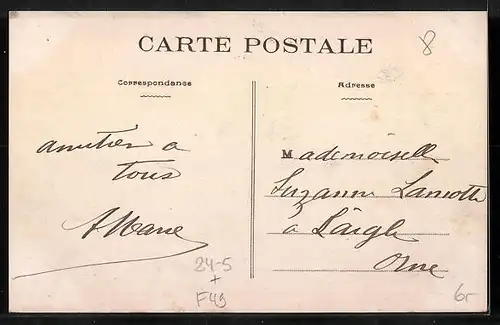 CARTE POSTALE
8
Correspondance
Adresse
amitiés à
tous
AMarie
Mademoiselle
Suzanne Lamotte
à Laigle
Orne
24-5
+
F49
6r